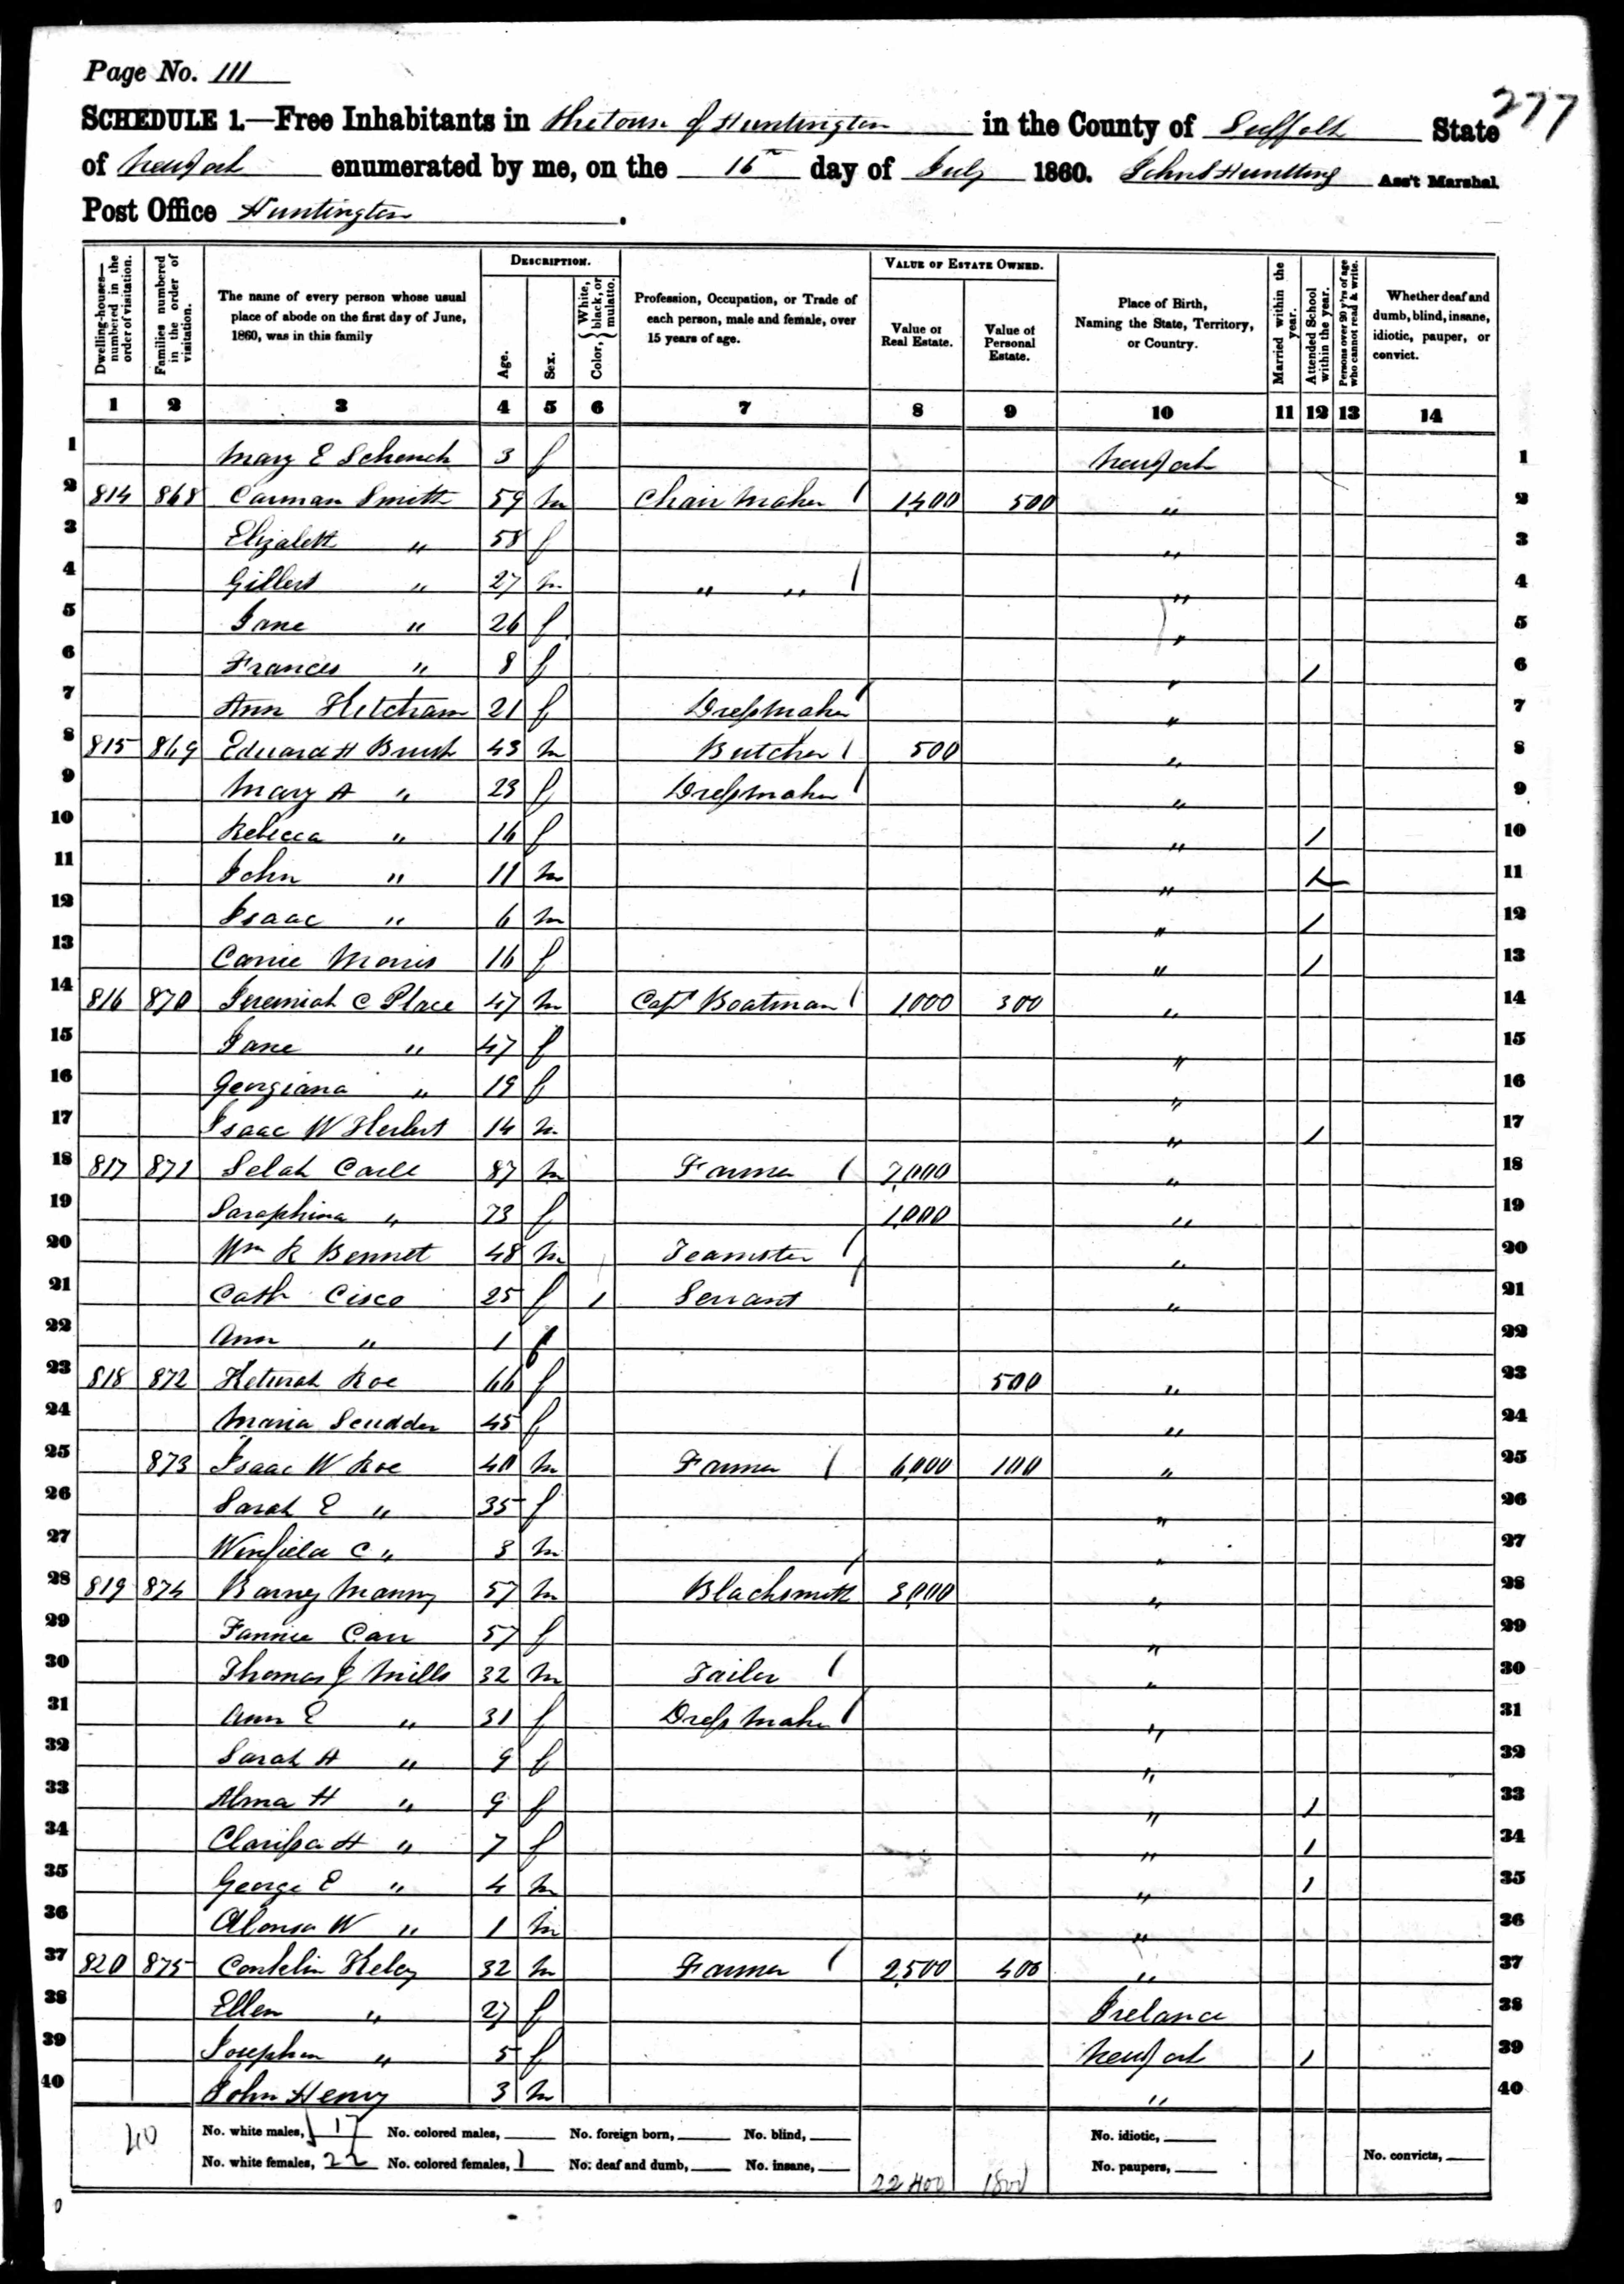 Page No. 111
277
SCHEDULE 1.—Free Inhabitants in The town of Huntington in the County of Suffolk State
of New York enumerated by me, on the 16th day of July 1860. John S Huntting Ass't Marshal.
Post Office Huntington.
Dwelling-houses—numbered in the order of visitation.
Families numbered in the order of visitation.
The name of every person whose usual place of abode on the first day of June, 1860, was in this family
DESCRIPTION.
Age.
Sex.
Color, { White, black, or mulatto.
Profession, Occupation, or Trade of each person, male and female, over 15 years of age.
VALUE OF ESTATE OWNED.
Value of Real Estate.
Value of Personal Estate.
Place of Birth, Naming the State, Territory, or Country.
Married within the year.
Attended School within the year.
Persons over 20 y'rs of age who cannot read & write.
Whether deaf and dumb, blind, insane, idiotic, pauper, or convict.
1 2 3 4 5 6 7 8 9 10 11 12 13 14
1 Mary E Schenck 3 f New York 1
2 814 868 Carman Smith 59 m Chair Maker / 1400 500 " 2
3 Elizabeth " 58 f " 3
4 Gilbert " 27 m " " / " 4
5 Jane " 26 f " 5
6 Frances " 8 f " / 6
7 Ann Ketcham 21 f Dressmaker / " 7
8 815 869 Edward H Brush 43 m Butcher / 500 " 8
9 Mary A " 23 f Dressmaker / " 9
10 Rebecca " 16 f " / 10
11 John " 11 m " / 11
12 Isaac " 6 m " / 12
13 Carrie Morris 16 f " / 13
14 816 870 Jeremiah C Place 47 m Capt Boatman / 1000 300 " 14
15 Jane " 47 f " 15
16 Georgiana " 19 f " 16
17 Isaac W Herbert 14 m " / 17
18 817 871 Selah Carll 87 m Farmer / 7,000 " 18
19 Saraphina " 73 f 1,000 " 19
20 Wm R Bennet 48 m Teamster / " 20
21 Cath Cisco 25 f 1 Servant / " 21
22 Ann " 1 f 22
23 818 872 Keturah Roe 66 f 500 " 23
24 Maria Scudder 45 f " 24
25 873 Isaac W Roe 40 m Farmer / 6,000 100 " 25
26 Sarah E " 35 f " 26
27 Winfield C " 3 m " 27
28 819 874 Barney Manny 57 m Blacksmith / 3,000 " 28
29 Fannie Carr 57 f " 29
30 Thomas J Mills 32 m Tailor / " 30
31 Ann E " 31 f Dress Maker / " 31
32 Sarah A " 9 f " 32
33 Alma H " 9 f " / 33
34 Clarissa H " 7 f " / 34
35 George E " 4 m " / 35
36 Alonso W " 1 m " 36
37 820 875 Conklin Kelcy 32 m Farmer / 2,500 400 " 37
38 Ellen " 27 f Ireland 38
39 Josephine " 5 f New York / 39
40 John Henry 3 m " 40
40
No. white males, 17 No. colored males, No. foreign born, No. blind, No. idiotic,
No. white females, 22 No. colored females, 1 No. deaf and dumb, No. insane, 22400 1800 No. paupers, No. convicts,